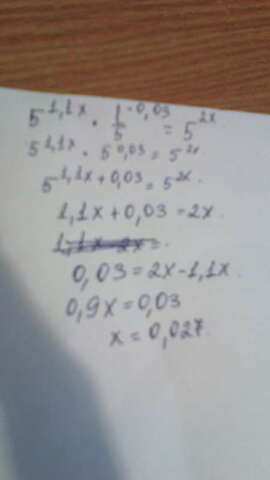 5^{1,1x} · \frac{1}{5}^{-0,03} = 5^{2x}
5^{1,1x} · 5^{0,03} = 5^{2x}.
5^{1,1x+0,03} = 5^{2x}.
1,1x+0,03=2x.
1,1x-2x=.
0,03=2x-1,1x.
0,9x=0,03
x=0,027.